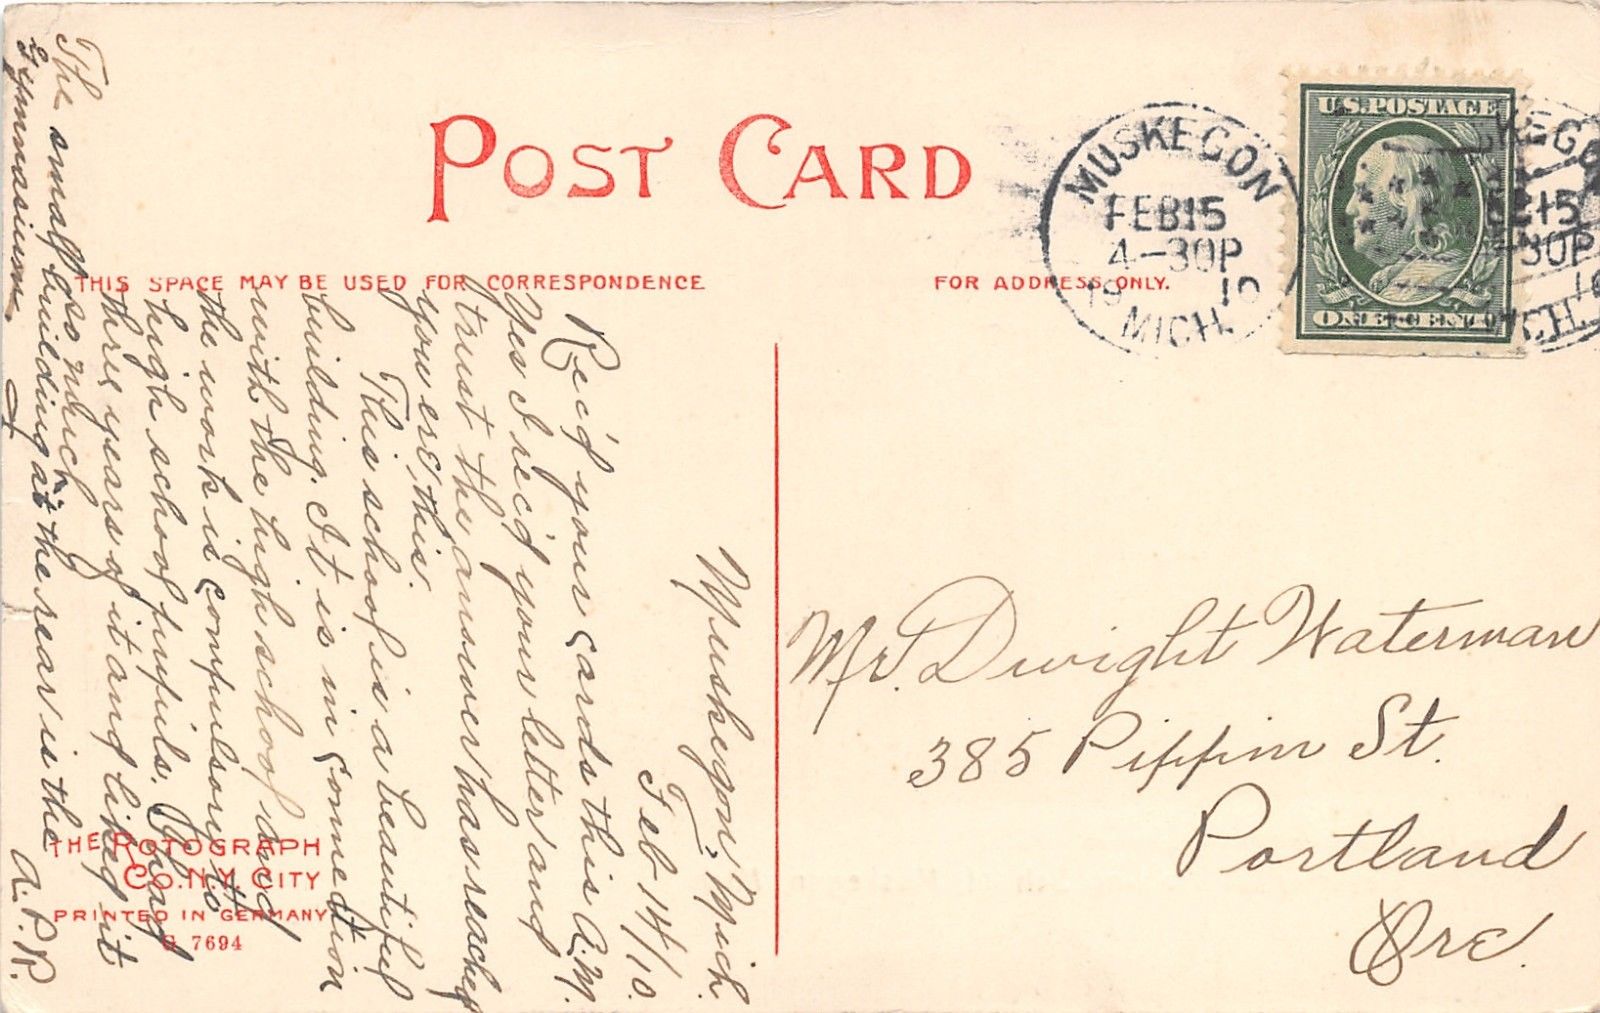 POST CARD
THIS SPACE MAY BE USED FOR CORRESPONDENCE
FOR ADDRESS ONLY.
MUSKEGON
FEB 15
4-30P
1910
MICH.
U.S. POSTAGE
ONE CENT
KEGO
15
30P
CH.
Muskegon, Mich.
Feb 14/10.
Rec'd your cards this A.M.
Yes I rec'd your letter and
trust the answer has reached
you ere this.
This school is a beautiful
building. It is in connection
with the high school and
the work is compulsory to
high school pupils. I had
three years of it and liked it
so much.
The small building at the rear is the
Gymnasium
A.P.R.
Mr. Dwight Waterman
385 Pippin St.
Portland
Ore.
THE ROTOGRAPH
CO. N.Y. CITY
PRINTED IN GERMANY
G 7694